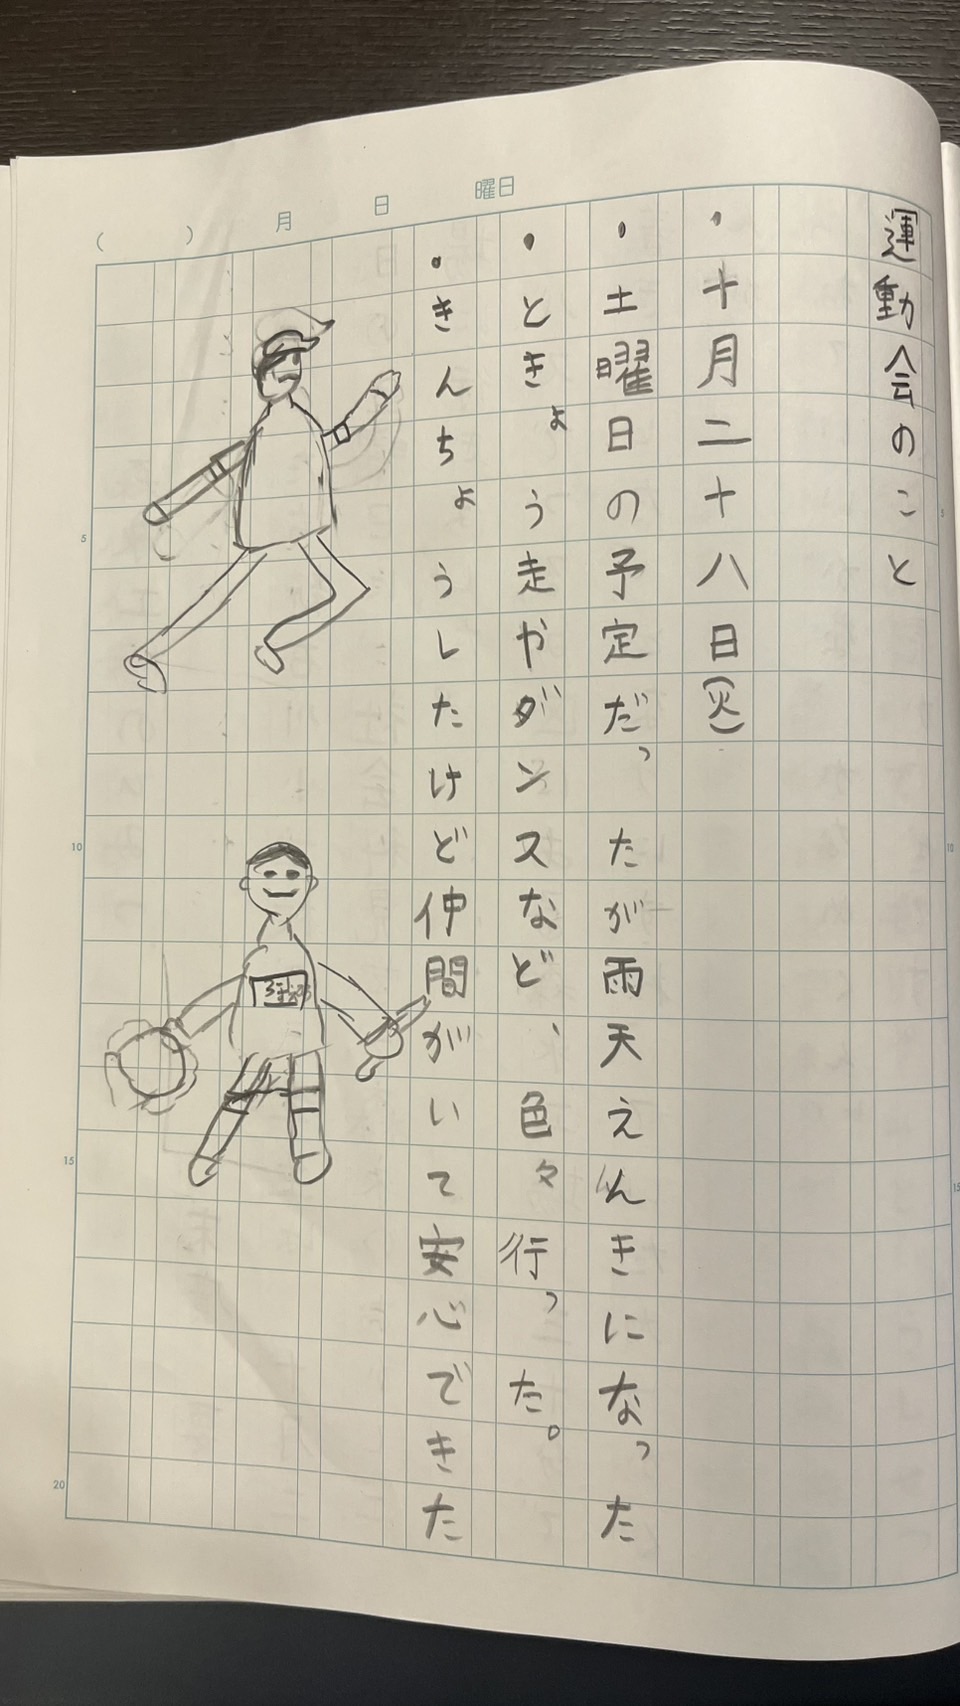 運動会のこと
・十月二十八日(火)
・土曜日の予定だったが雨天えんきになった
・ときょう走やダンスなど、色々行った。
・きんちょうしたけど仲間がいて安心できた
( ) 月 日 曜日
5
10
15
20
5
10
15